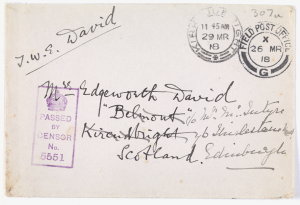 T.W.E. David
307a
11 45 AM
29 MR
18
FIELD POST OFFICE
X
26 MR
18
G
Mrs Edgeworth David
"Belmont" c/o Mrs McIntyre
Kircudbright
Scotland. Edinburgh
PASSED
BY
CENSOR
No.
5551